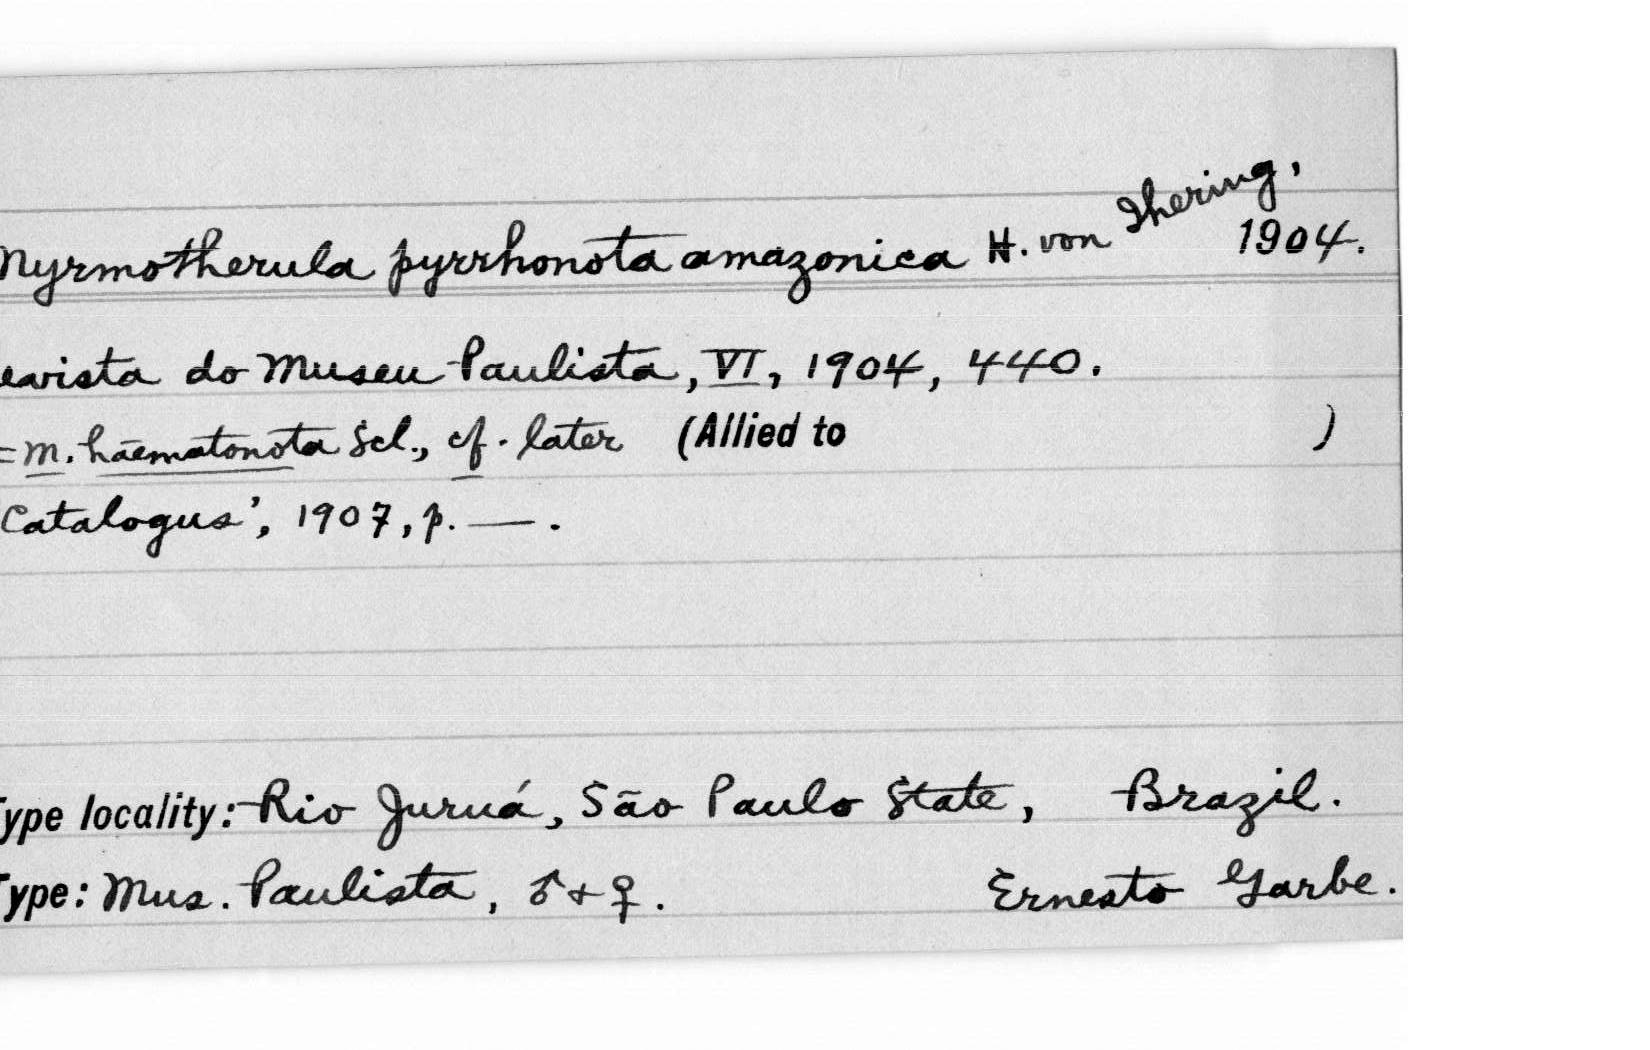 Myrmotherula pyrrhonota amazonica H. von Ihering, 1904.
evista do Museu Paulista, VI, 1904, 440.
= M. haematonota Scl., cf. later (Allied to )
Catalogus', 1907, p. — .
Type locality: Rio Juruá, São Paulo State, Brazil.
Type: Mus. Paulista, ♂ + ♀. Ernesto Garbe.